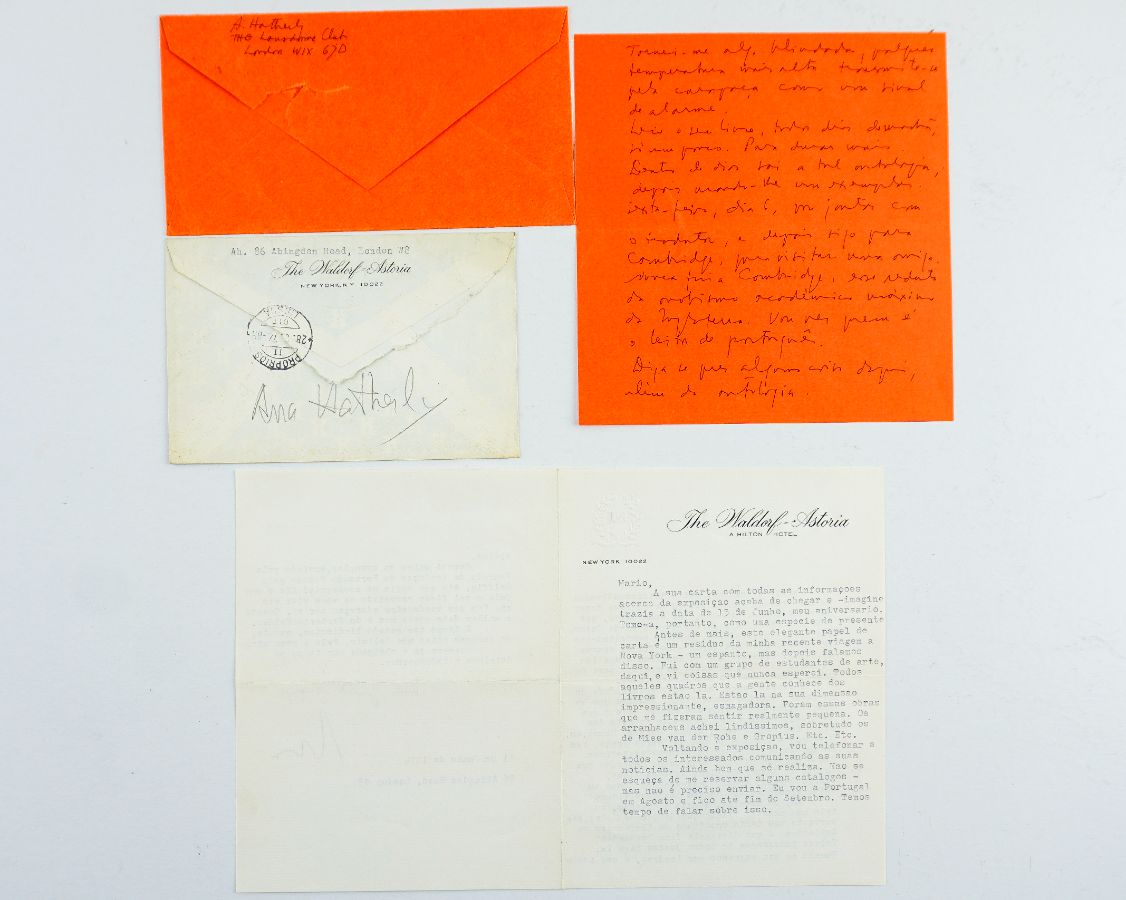 A. Hatherly
Club
London W1X 67D
Tornei-me alg. blindada, qualquer
temperatura mais alta
pela carapaça como um sinal
de alarme.
Leio o seu livro, todos dias
um pouco. Para durar mais.
Dentro de dias sai a tal antologia,
depois mando-lhe um exemplar.
sexta-feira, dia 6, vou jantar com
o e depois sigo para
Cambridge, para visitar uma amiga.
Nunca fui a Cambridge, esse reduto
do snobismo académico máximo
da Inglaterra. Vou ver quem é
o leitor de português.
Diga se quer alguma coisa daqui,
além da antologia.
Ah. 86 Abingdon Road, London W8
The Waldorf-Astoria
NEW YORK, N.Y. 10022
PROPRIOS
Ana Hatherly
The Waldorf-Astoria
A HILTON HOTEL
NEW YORK 10022
Mario,
A sua carta com todas as informaçoes
acerca da exposiçao acaba de chegar e -imagine
trazia a data de 15 de Junho, meu aniversario.
Tomo-a, portanto, como uma especie de presente
Antes de mais, este elegante papel de
carta é um residuo da minha recente viagem a
Nova York - um espanto, mas depois falamos
disso. Fui com um grupo de estudantes de arte,
daqui,e vi coisas que nunca esperei. Todos
aqueles quadros que a gente conhece dos
livros estao la. Estao la na sua dimensao
impressionante, esmagadora. Foram essas obras
que me fizeram sentir realmente pequena. Os
arranhaceus achei lindissimos, sobretudo os
de Mies van der Rohe e Gropius. Etc. Etc.
Voltando à exposiçao, vou telefonar a
todos os interessados comunicando as suas
noticias. Ainda bem que se realiza. Nao se
esqueça de me reservar alguns catalogos -
mas nao é preciso enviar. Eu vou a Portugal
em Agosto e fico ate fim de Setembro. Temos
tempo de falar sobre isso.